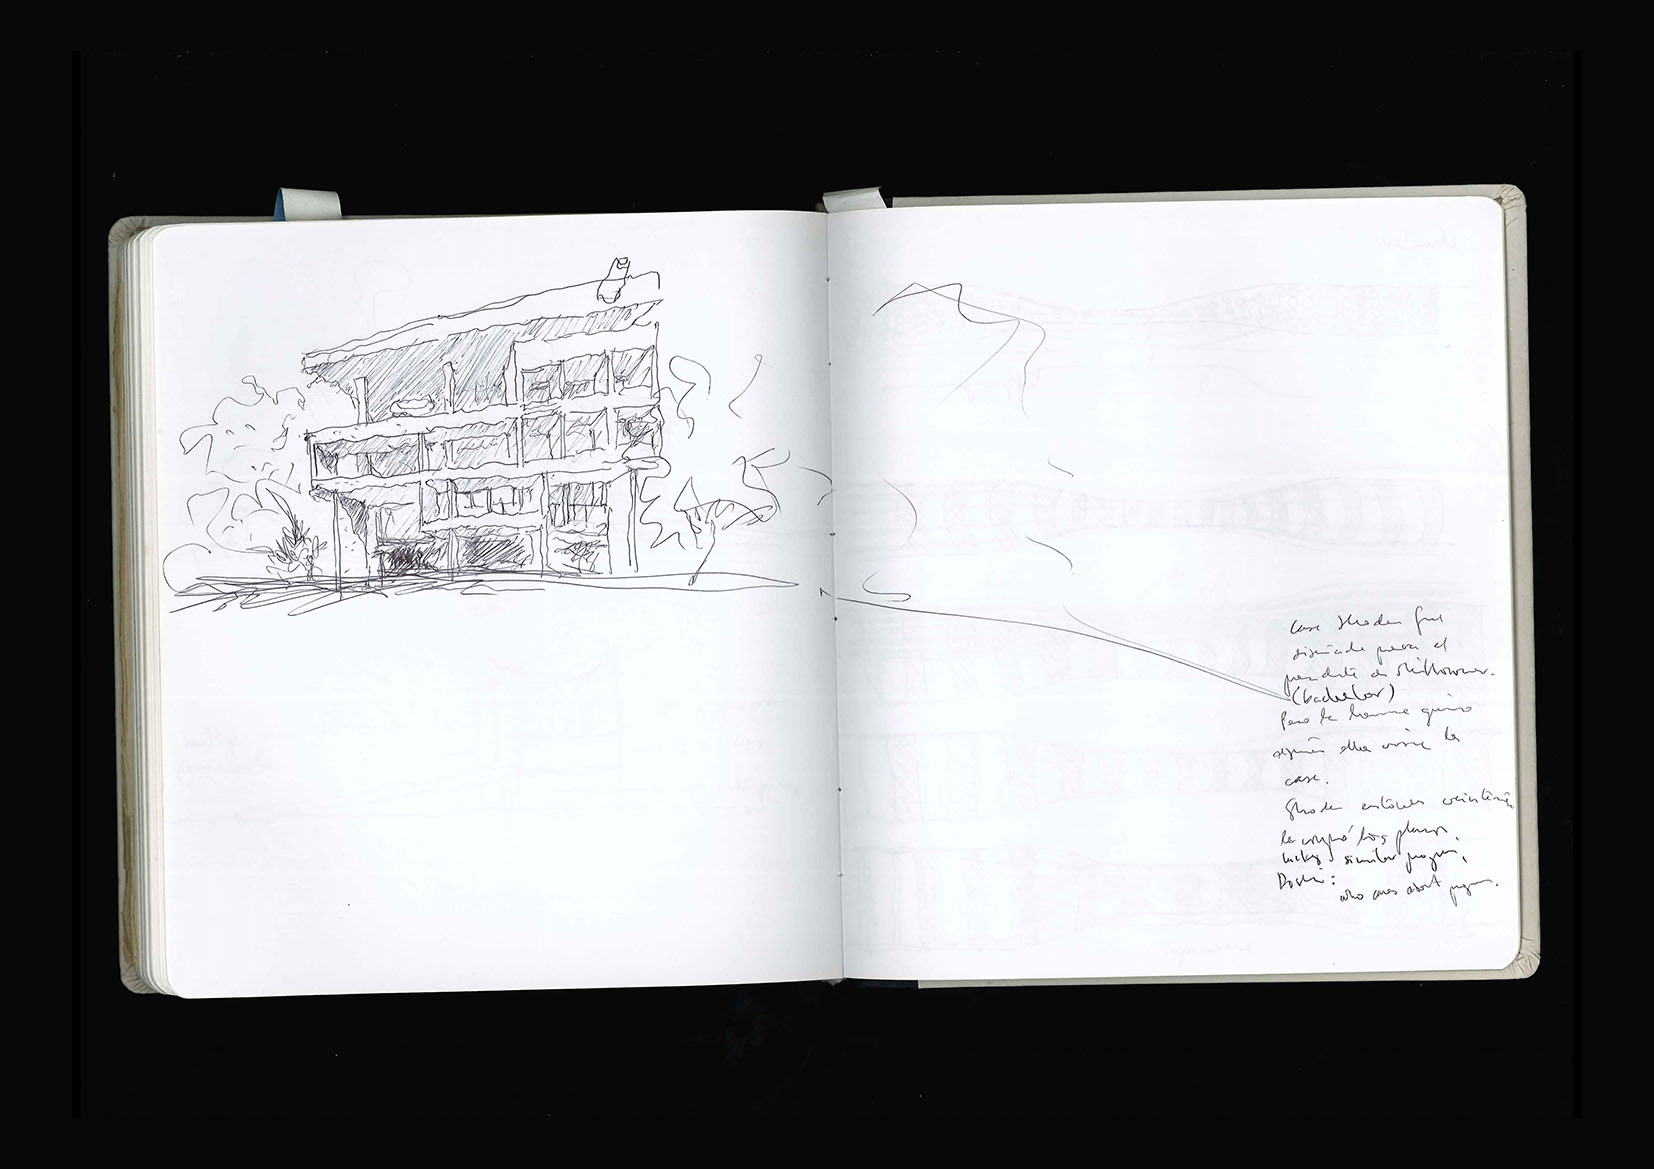 Casa Shodan fue
diseñada para el
presidente de Millowner.
(bachelor)
Pero la hermana quiso
ella la
casa.
Shodan entonces
le compró los planos.
similar program,
Doshi:
who cares about program.